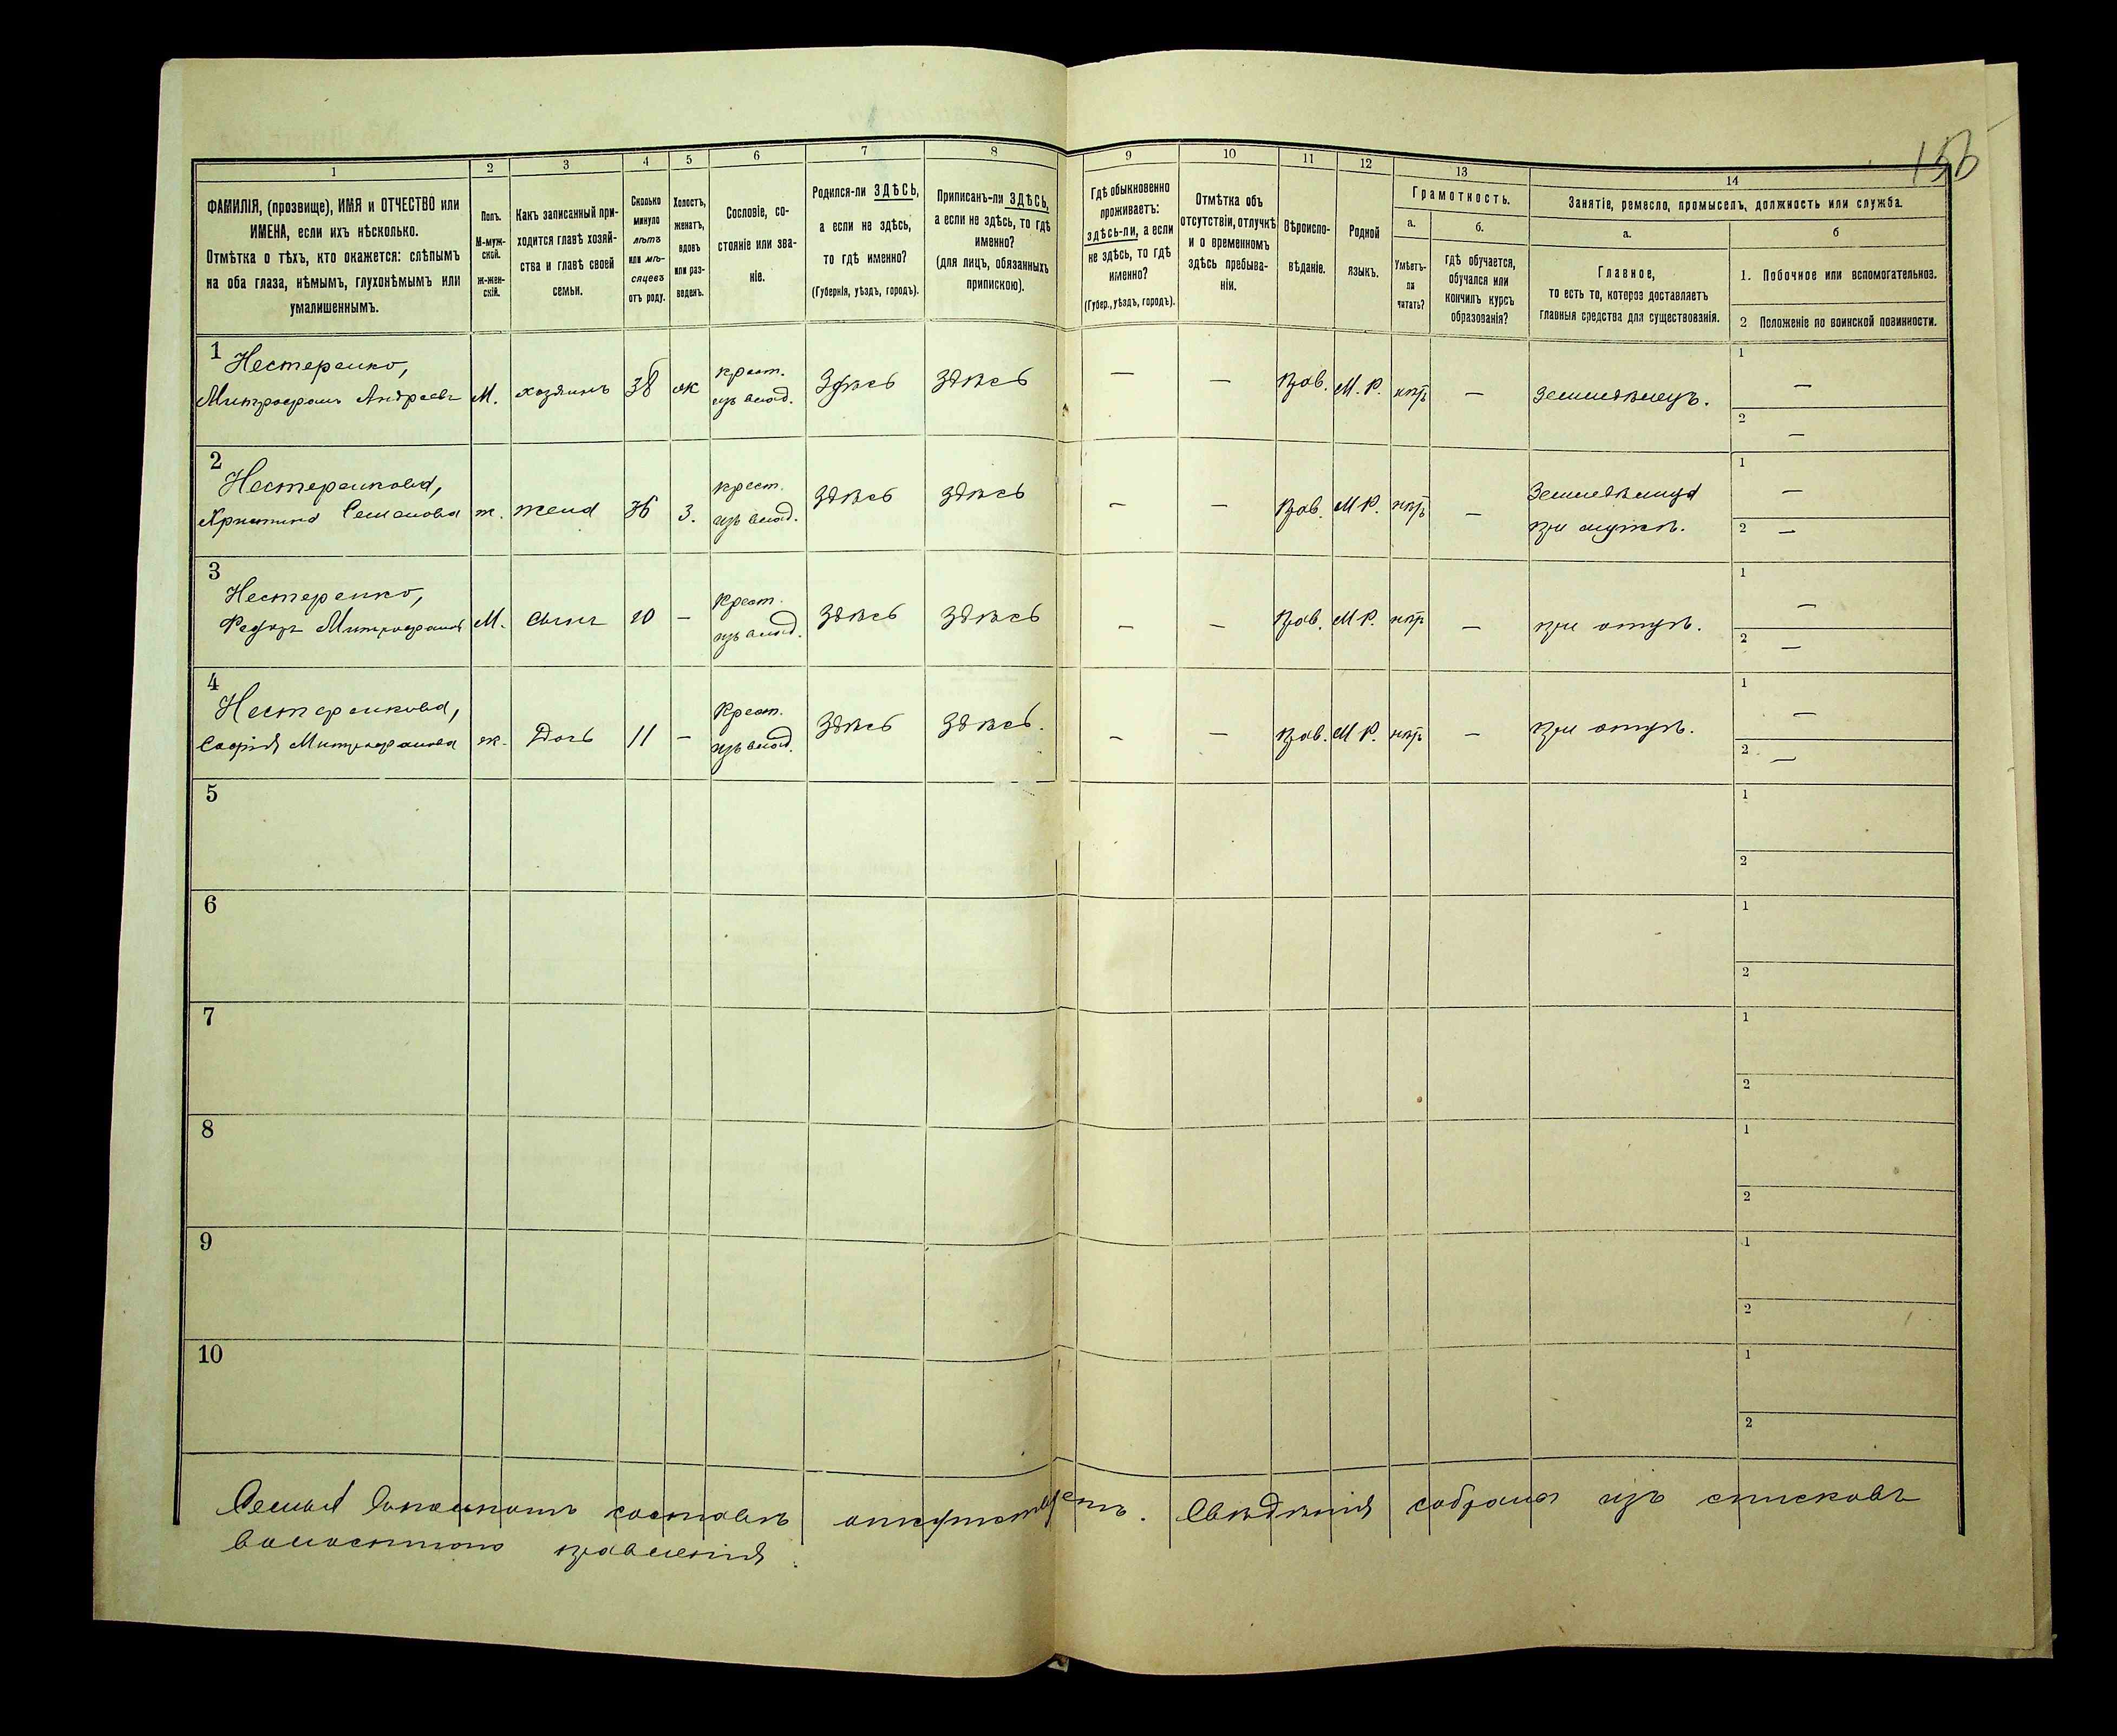 156
1 2 3 4 5 6 7 8 9 10 11 12 13 14
ФАМИЛІЯ, (прозвище), ИМЯ и ОТЧЕСТВО или
ИМЕНА, если ихъ нѣсколько.
Отмѣтка о тѣхъ, кто окажется: слѣпымъ
на оба глаза, нѣмымъ, глухонѣмымъ или
умалишеннымъ.
Полъ.
М-муж-
ской.
ж-жен-
скій.
Какъ записанный при-
ходится главѣ хозяй-
ства и главѣ своей
семьи.
Сколько
минуло
лѣтъ
или мѣ-
сяцевъ
отъ роду.
Холостъ,
женатъ,
вдовъ
или раз-
веденъ.
Сословіе, со-
стояніе или зва-
ніе.
Родился-ли ЗДѢСЬ,
а если не здѣсь,
то гдѣ именно?
(Губернія, уѣздъ, городъ).
Приписанъ-ли ЗДѢСЬ,
а если не здѣсь, то гдѣ
именно?
(для лицъ, обязанныхъ
припискою).
Гдѣ обыкновенно
проживаетъ:
здѣсь-ли, а если
не здѣсь, то гдѣ
именно?
(Губер., уѣздъ, городъ).
Отмѣтка объ
отсутствіи, отлучкѣ
и о временномъ
здѣсь пребыва-
ніи.
Вѣроиспо-
вѣданіе.
Родной
языкъ.
Грамотность.
а.
Умѣетъ-
ли
читать?
б.
гдѣ обучается,
обучался или
кончилъ курсъ
образованія?
Занятіе, ремесло, промыселъ, должность или служба.
а.
Главное,
то есть то, которое доставляетъ
главныя средства для существованія.
б
1. Побочное или вспомогательное.
2 Положеніе по воинской повинности.
1 Нестеренко,
Митрофанъ Андреевъ М. хозяинъ 38 ж крест. Здѣсь Здѣсь — — Прав. М. Р. — Земледѣлецъ. 1 —
изъ влад. 2 —
2 Нестеренкова,
Христина Семенова ж. жена 36 З. крест. здѣсь здѣсь — — Прав. М Р. — Земледѣлица 1 —
изъ влад. при мужѣ. 2 —
3 Нестеренко,
Федоръ Митрофановъ М. сынъ 10 — Крест. здѣсь здѣсь — — Прав. М Р. — при отцѣ. 1 —
изъ влад. 2 —
4 Нестеренкова,
Софія Митрофанова ж. Дочь 11 — Крест. Здѣсь Здѣсь. — — Прав. М Р. — При отцѣ. 1 —
изъ влад. 2 —
5 1
2
6 1
2
7 1
2
8 1
2
9 1
2
10 1
2
Семья составѣ отсутствуетъ. Свѣдѣнія собраны изъ списковъ
волостного правленія.